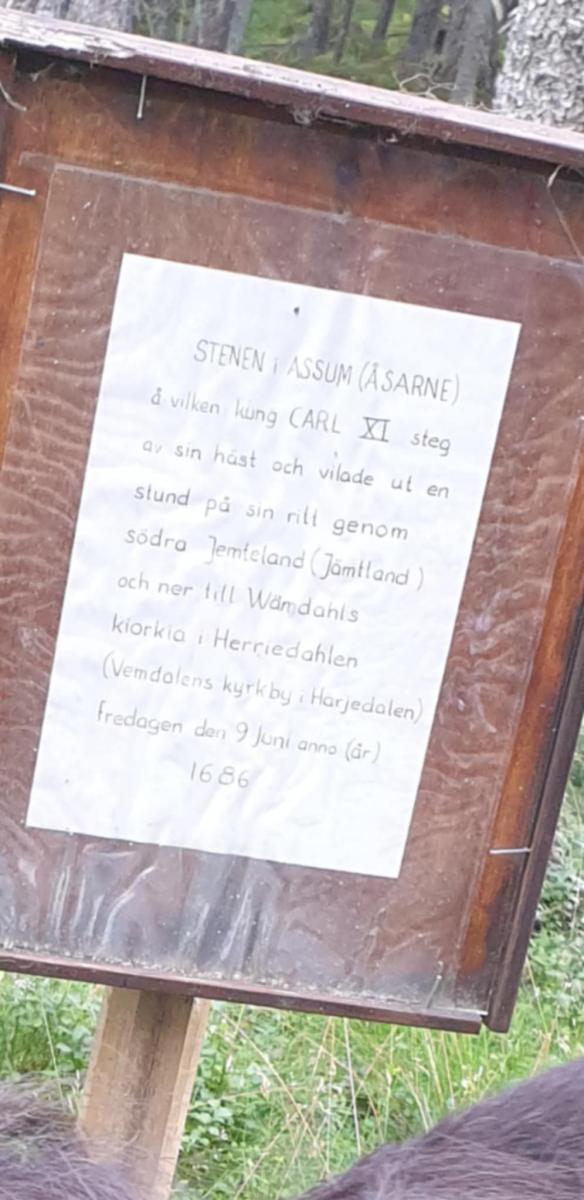 STENEN i ASSUM (ÅSARNE)
å vilken kung CARL XI steg
av sin häst och vilade ut en
stund på sin ritt genom
södra Jemteland (Jämtland)
och ner till Wämdahls
kiorkia i Herriedahlen
(Vemdalens kyrkby i Härjedalen)
fredagen den 9 Juni anno (år)
1686